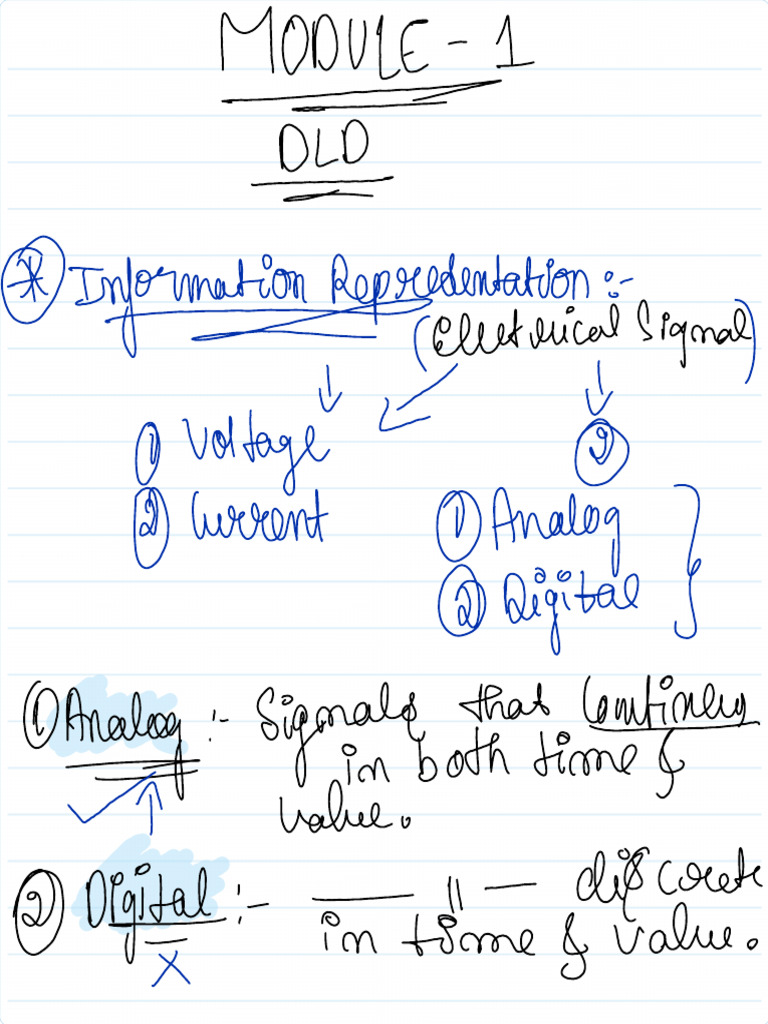 MODULE - 1
DLD
* Information Representation :-
(Electrical Signal)
① Voltage
② Current
②
① Analog
② Digital
① Analog :- Signals that Contineus
in both time &
value.
② Digital :- —— 〃 — discrete
in time & value.
X